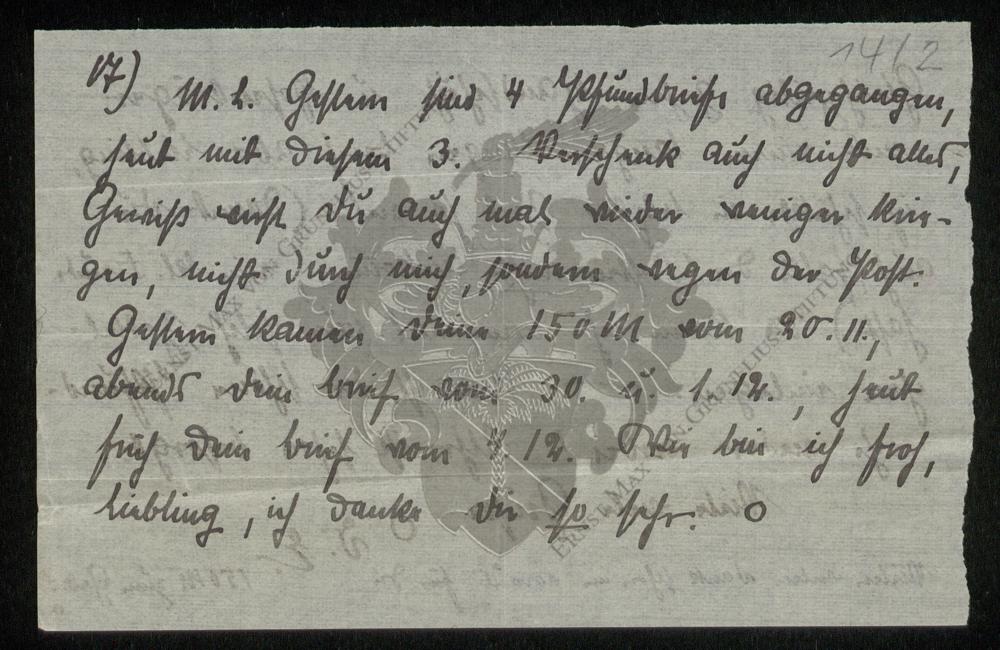 14/2
17)
M. L. Gestern sind 4 Pfundbriefe abgegangen,
heut mit diesem 3. Verschenk auch nicht alles,
Gewiß wirst Du auch mal wieder weniger krie-
gen, nicht durch mich, sondern wegen der Post.
Gestern kamen Deine 150 M vom 20.11.,
abends Dein Brief vom 30. u. 1. 12., heut
früh Dein Brief vom 12. Wie bin ich froh,
Liebling, ich danke Dir so sehr. O
Ernst Max von Grunelius-Stiftung